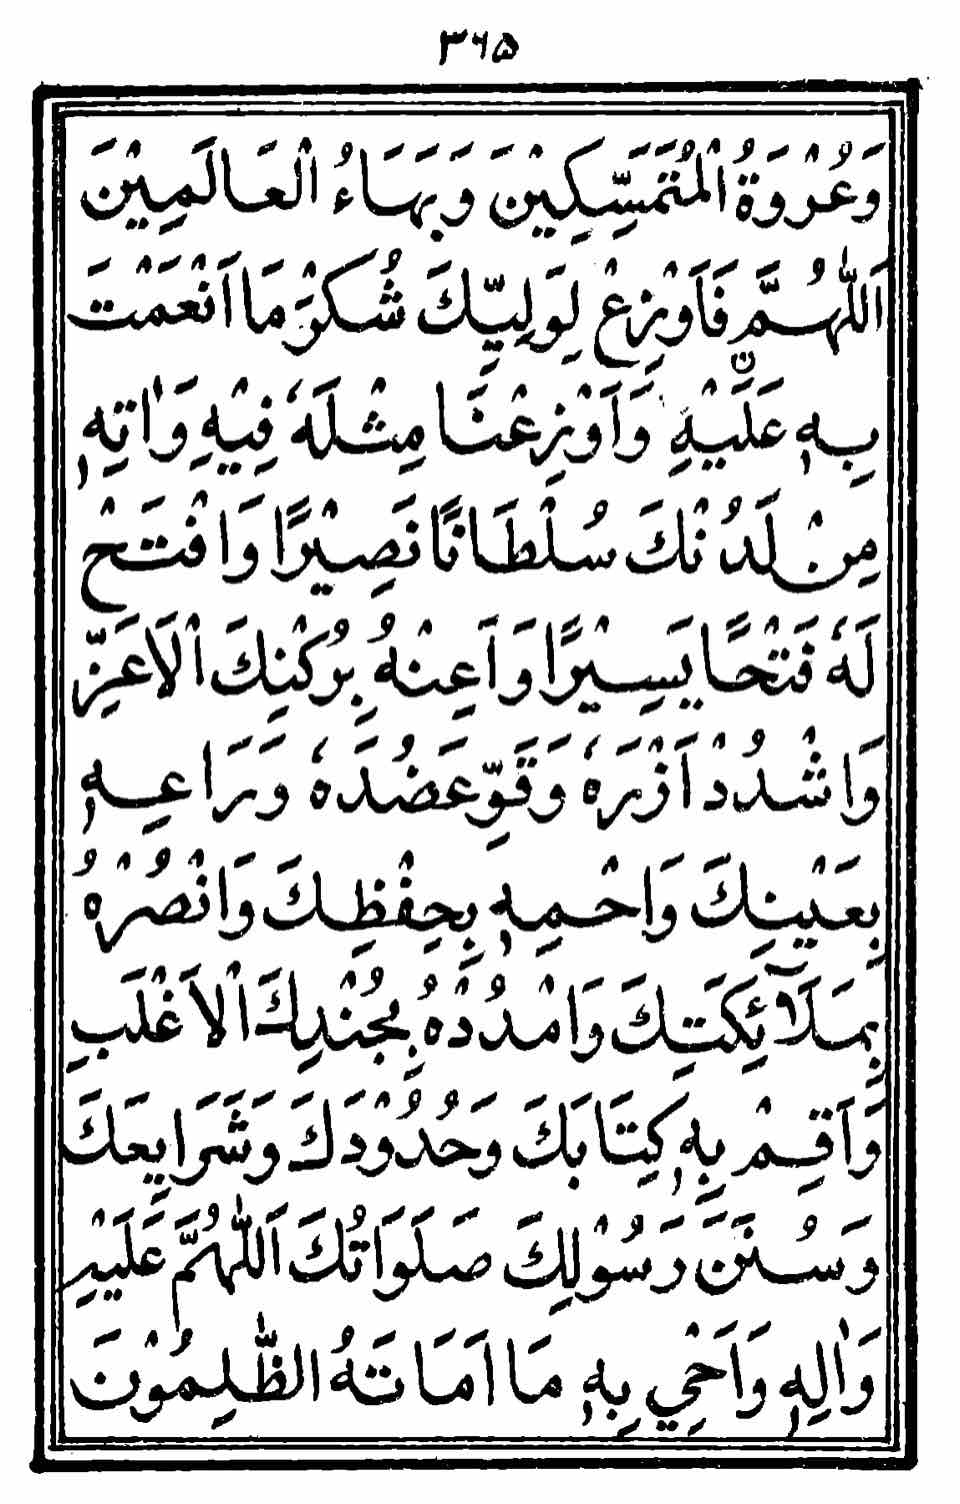 ۳۶۵
وَعُرْوَةُ الْمُتَمَسِّكِيْنَ وَبَهَاءُ الْعَالَمِيْنَ
اَللّٰهُمَّ فَاَوْزِعْ لِوَلِيِّكَ شُكْرَ مَا اَنْعَمْتَ
بِهٖ عَلَيْهِ وَاَوْزِعْنَا مِثْلَهٗ فِيْهِ وَاٰتِهٖ
مِنْ لَدُنْكَ سُلْطَانًا نَصِيْرًا وَافْتَحْ
لَهٗ فَتْحًا يَسِيْرًا وَاَعِنْهُ بِرُكْنِكَ الْاَعَزِّ
وَاشْدُدْ اَزْرَهٗ وَقَوِّ عَضُدَهٗ وَرَاعِهٖ
بِعَيْنِكَ وَاحْمِهٖ بِحِفْظِكَ وَانْصُرْهُ
بِمَلَآئِكَتِكَ وَامْدُدْهُ بِجُنْدِكَ الْاَغْلَبِ
وَاَقِمْ بِهٖ كِتَابَكَ وَحُدُوْدَكَ وَشَرَايِعَكَ
وَسُنَنَ رَسُوْلِكَ صَلَوَاتُكَ اَللّٰهُمَّ عَلَيْهِ
وَاٰلِهٖ وَاَحْيِ بِهٖ مَا اَمَاتَهُ الظّٰلِمُوْنَ